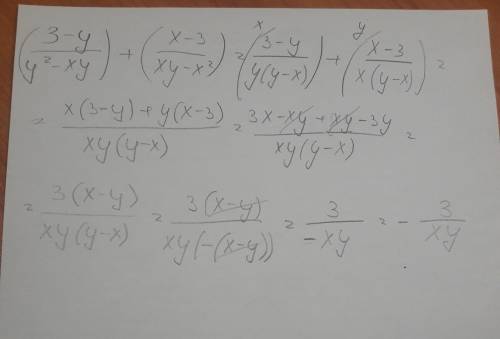 ((3-y)/(y²-xy)) + ((x-3)/(xy-x²)) = ((3-y)/(y(y-x)))ˣ + ((x-3)/(x(y-x)))ʸ =
= (x(3-y)+y(x-3))/(xy(y-x)) = (3x-xy+xy-3y)/(xy(y-x)) =
= (3(x-y))/(xy(y-x)) = (3(x-y))/(xy(-(x-y))) = 3/(-xy) = - 3/(xy)